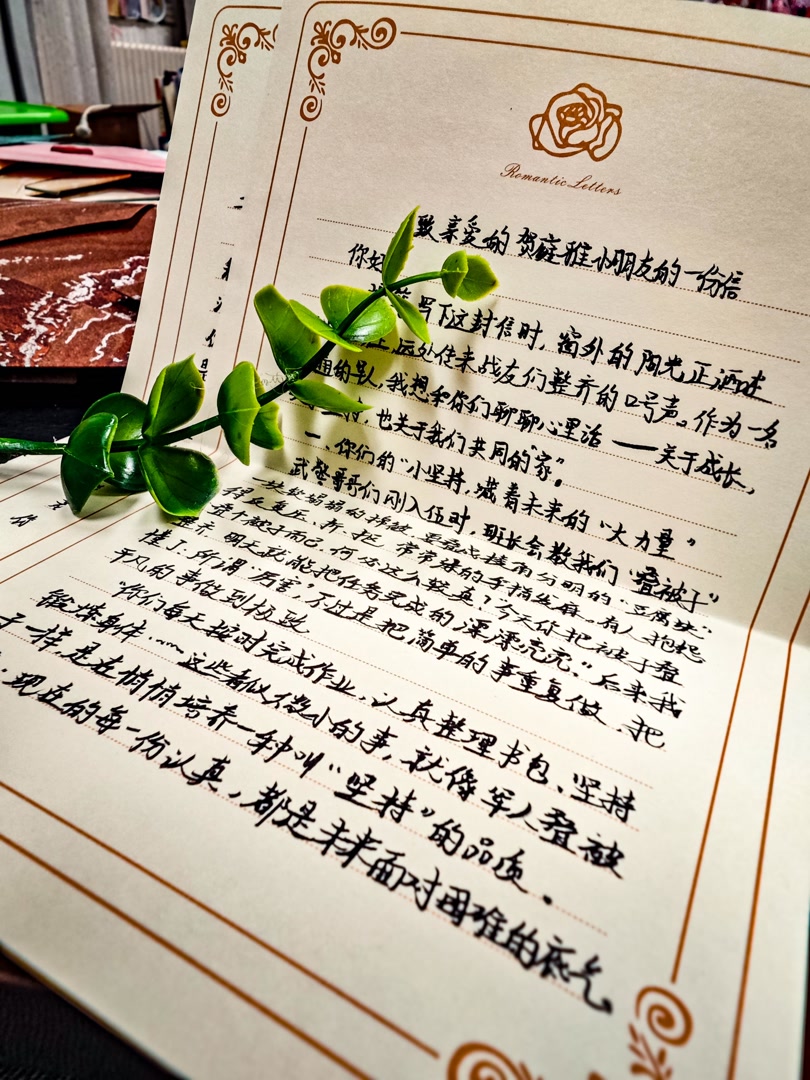 Romantic Letters
致亲爱的贺庭雅小朋友的一份信
你好
写下这封信时，窗外的阳光正洒在
上 远处传来战友们整齐的口号声。作为一名
通的军人，我想和你们聊聊心里话——关于成长，
坚持，也关于我们共同的"家"。
一、你们的"小坚持，藏着未来的"大力量"
武警哥哥们刚入伍时，班长会教我们"叠被子"
一块软塌塌的棉被，要叠成棱角分明的"豆腐块"
得反复压、折、抠，常常练的手指发麻。有人抱怨
叠个被子而已，何必这么较真？今天你把被子叠
整齐，明天就能把任务完成的漂漂亮亮。"后来我
懂了，所谓"厉害"，不过是把简单的事重复做、把
平凡的事做到极致
"你们每天按时完成作业、认真整理书包、坚持
锻炼身体……这些看似微小的事，就像军人叠被
子一样，是在悄悄培养一种叫"坚持"的品质。
现在的每一份认真，都是未来面对困难的底气